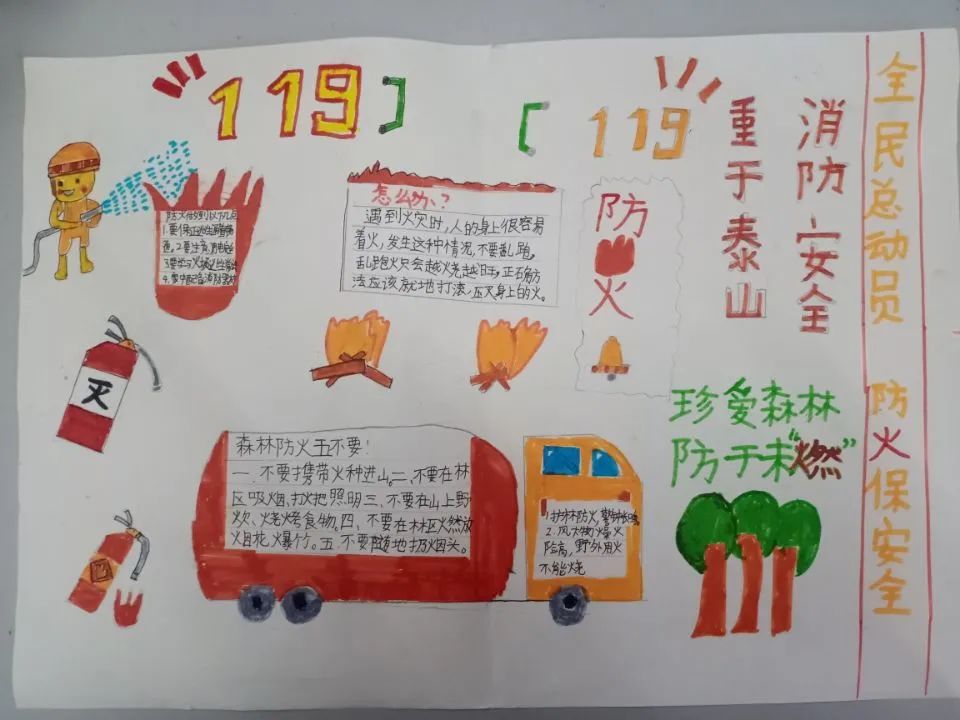 119
119
消防安全
重于泰山
全民总动员
防火保安全
怎么办?
遇到火灾时,人的身上很容易
着火,发生这种情况,不要乱跑,
乱跑火只会越烧越旺,正确方
法应该就地打滚,压灭身上的火。
防
火
灭
珍爱森林
防于未“燃”
森林防火五不要!
一.不要携带火种进山。二、不要在林
区吸烟,打火把照明三、不要在山上野
炊、烧烤食物。四、不要在林区燃放
烟花爆竹。五.不要随地扔烟头。
1.护林防火,警钟长鸣
2.风大物燥火
险高,野外用火
不能烧